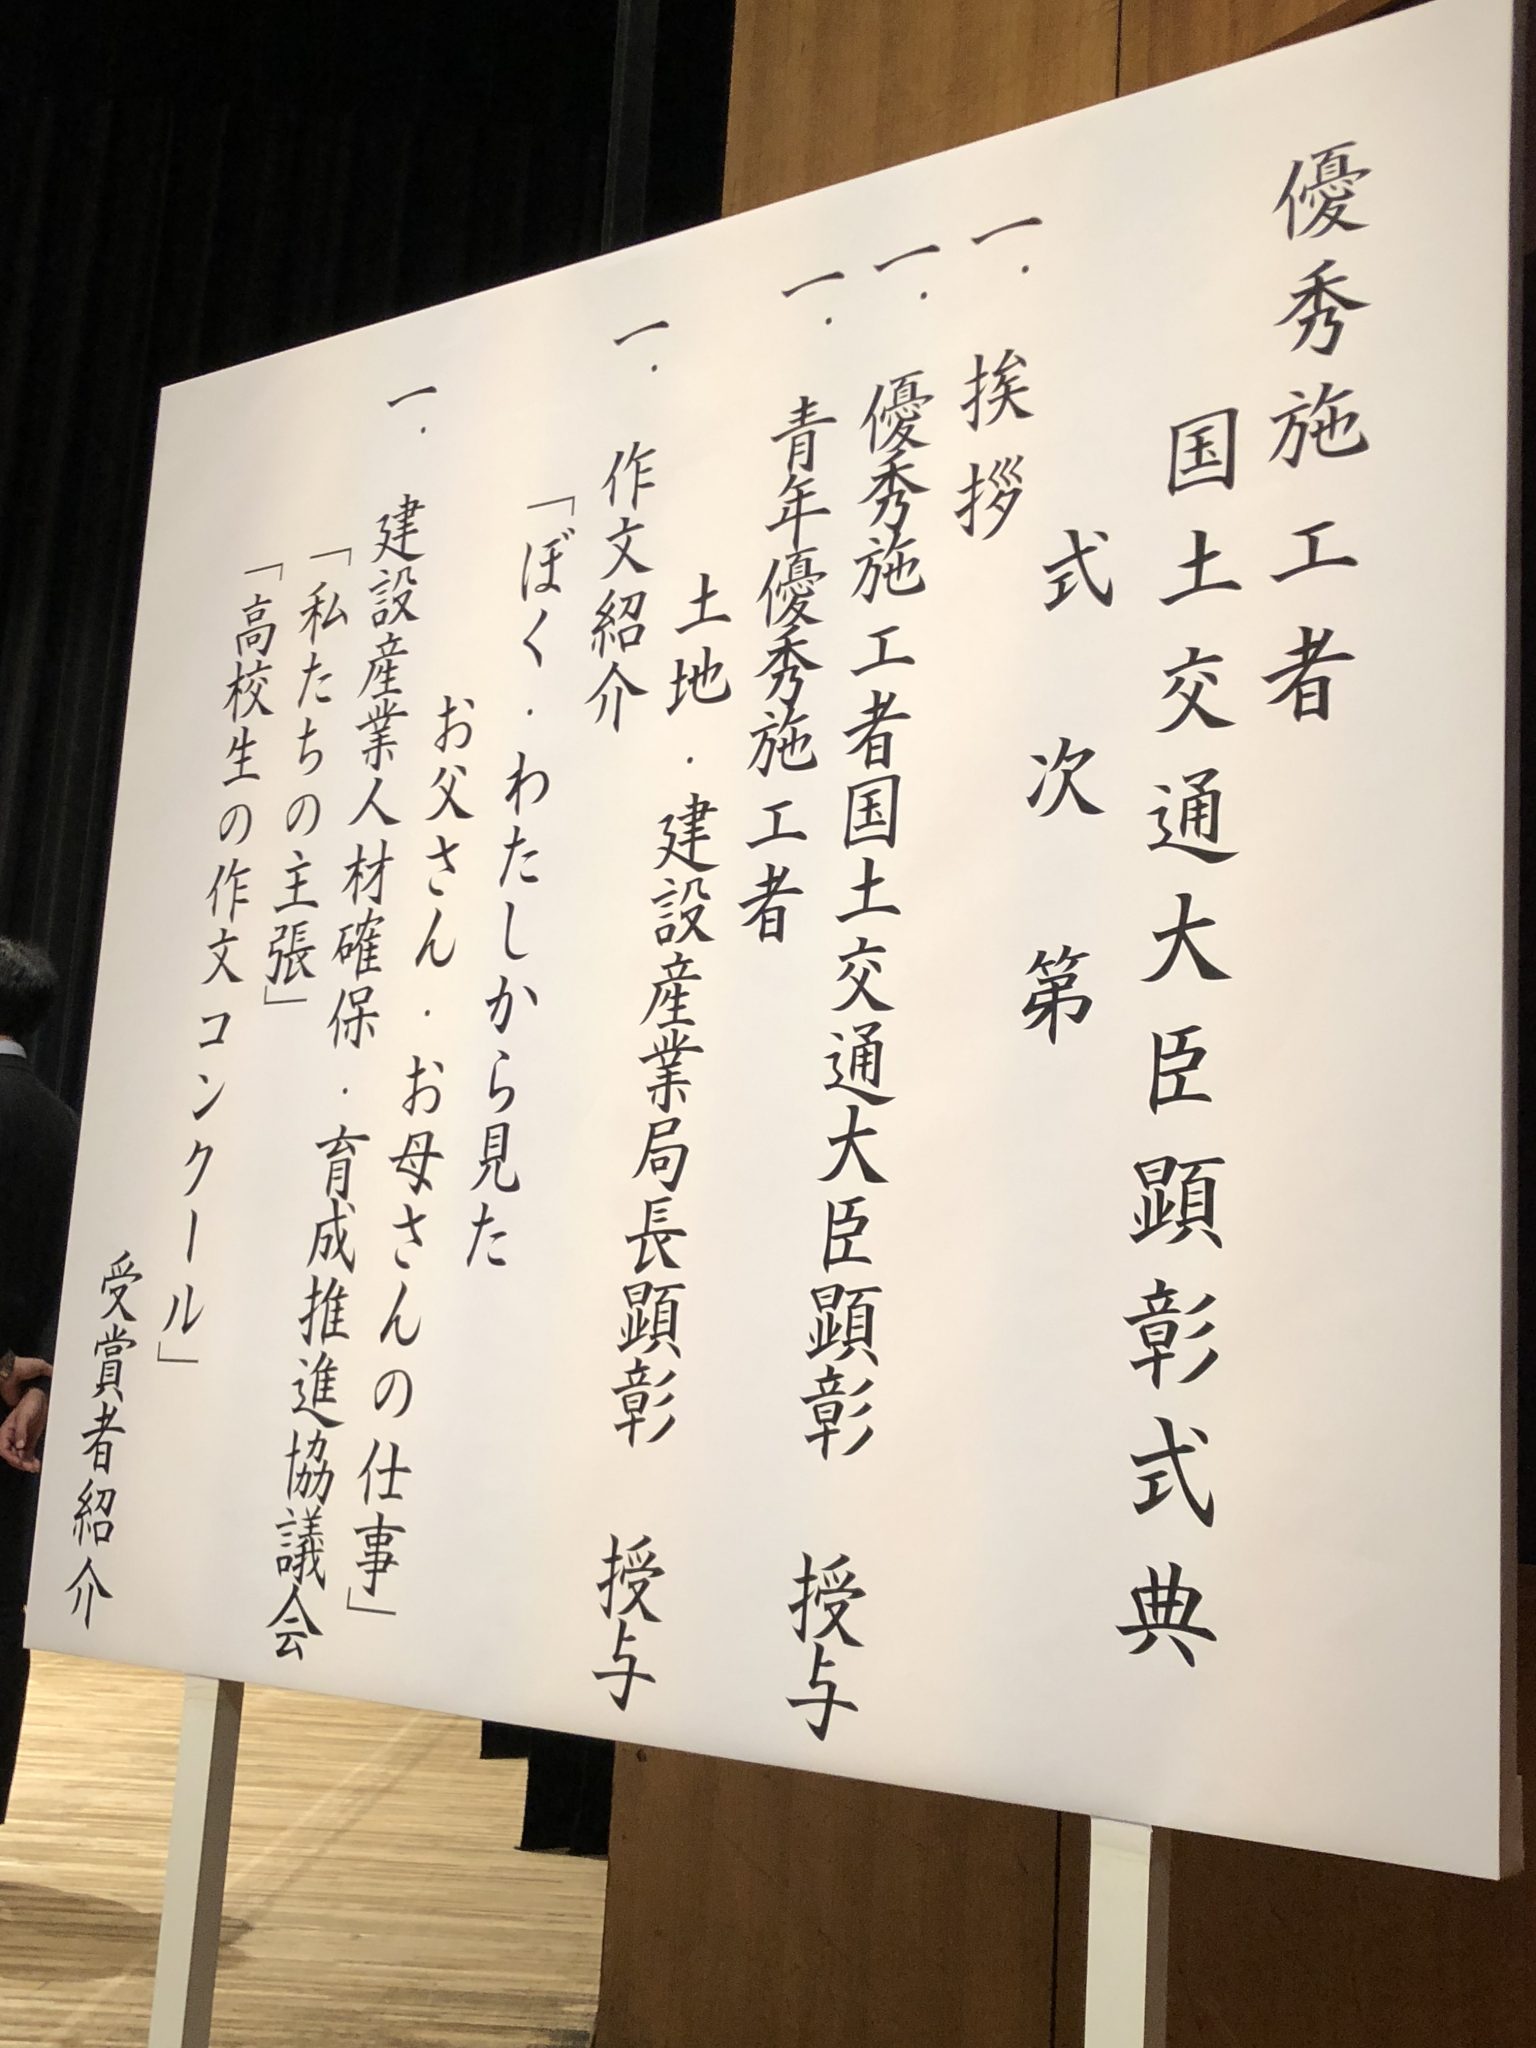 優秀施工者
国土交通大臣顕彰式典
式次第
一.挨拶
一.優秀施工者国土交通大臣顕彰 授与
一.青年優秀施工者
土地・建設産業局長顕彰 授与
一.作文紹介
「ぼく・わたしから見た
お父さん・お母さんの仕事」
一.建設産業人材確保・育成推進協議会
「私たちの主張」
「高校生の作文コンクール」
受賞者紹介